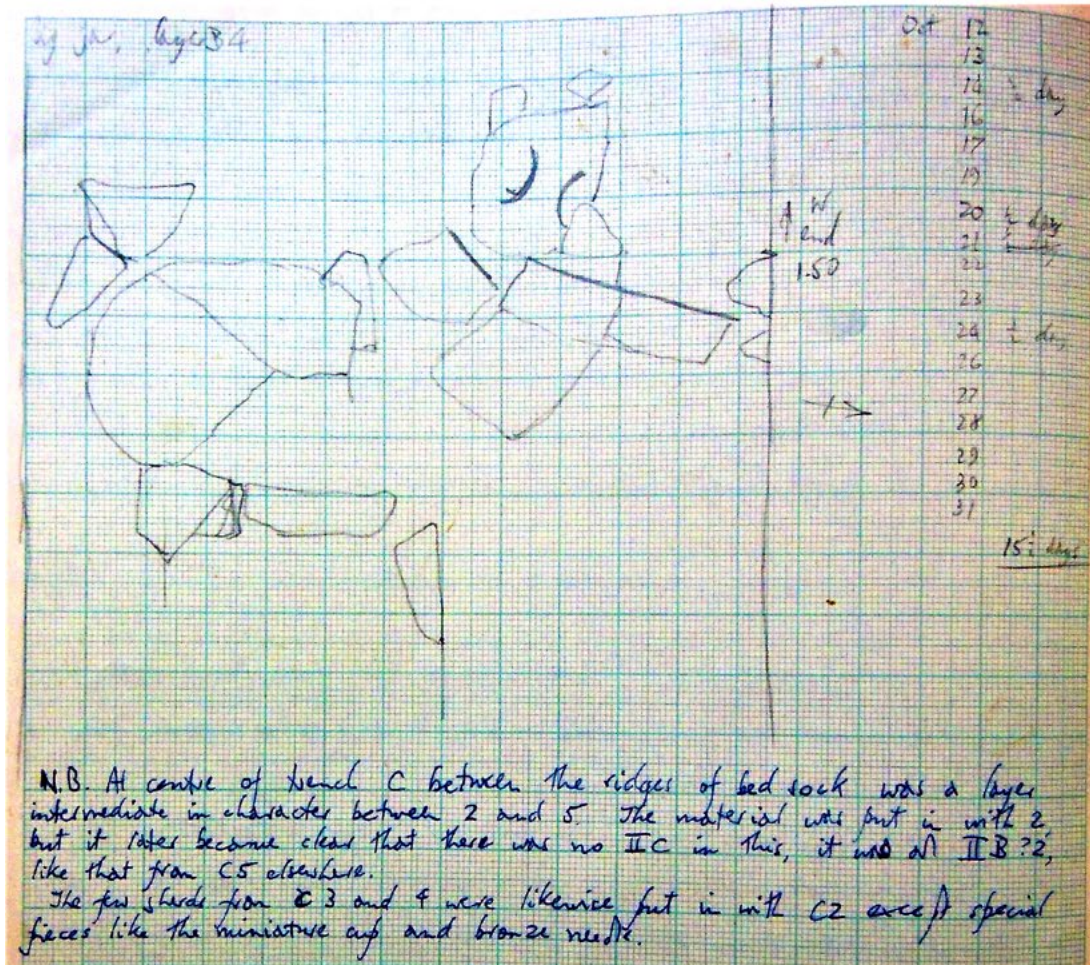 layer 3 4
Oct 12
13
14 ½ day
16
17
19
W
20 ½ day
end
21 ½ day
22
1.50
23
24 ½ day
26
27
28
29
30
31
15½ days
N.B. At centre of trench C between the ridges of bed rock was a layer
intermediate in character between 2 and 5. The material was put in with 2,
but it later became clear that there was no IIC in this, it was all IIB?2,
like that from C5 elsewhere.
The few sherds from C3 and 4 were likewise put in with C2 except special
pieces like the miniature cup and bronze needle.